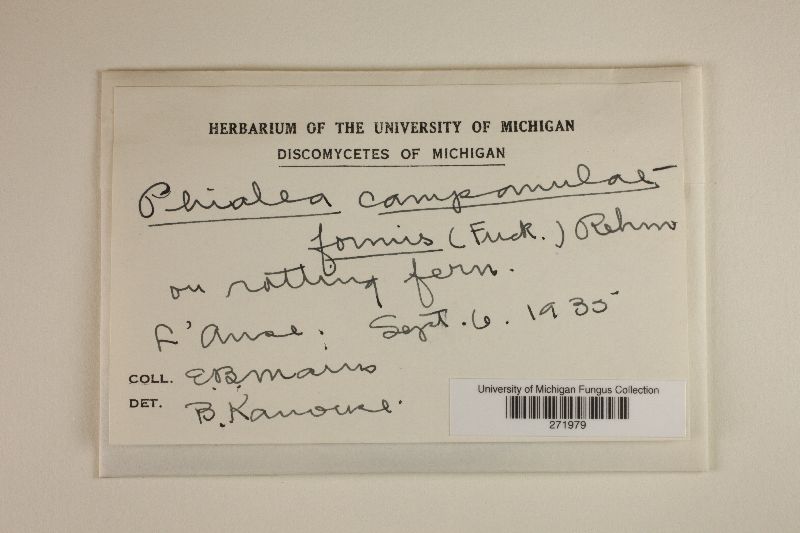 HERBARIUM OF THE UNIVERSITY OF MICHIGAN
DISCOMYCETES OF MICHIGAN
Phialea campanulae-
formis (Fuck.) Rehm
on rotting fern.
L'Anse. Sept. 6. 1935
COLL. E.B. Mains
DET. B. Kanouse.
University of Michigan Fungus Collection
271979